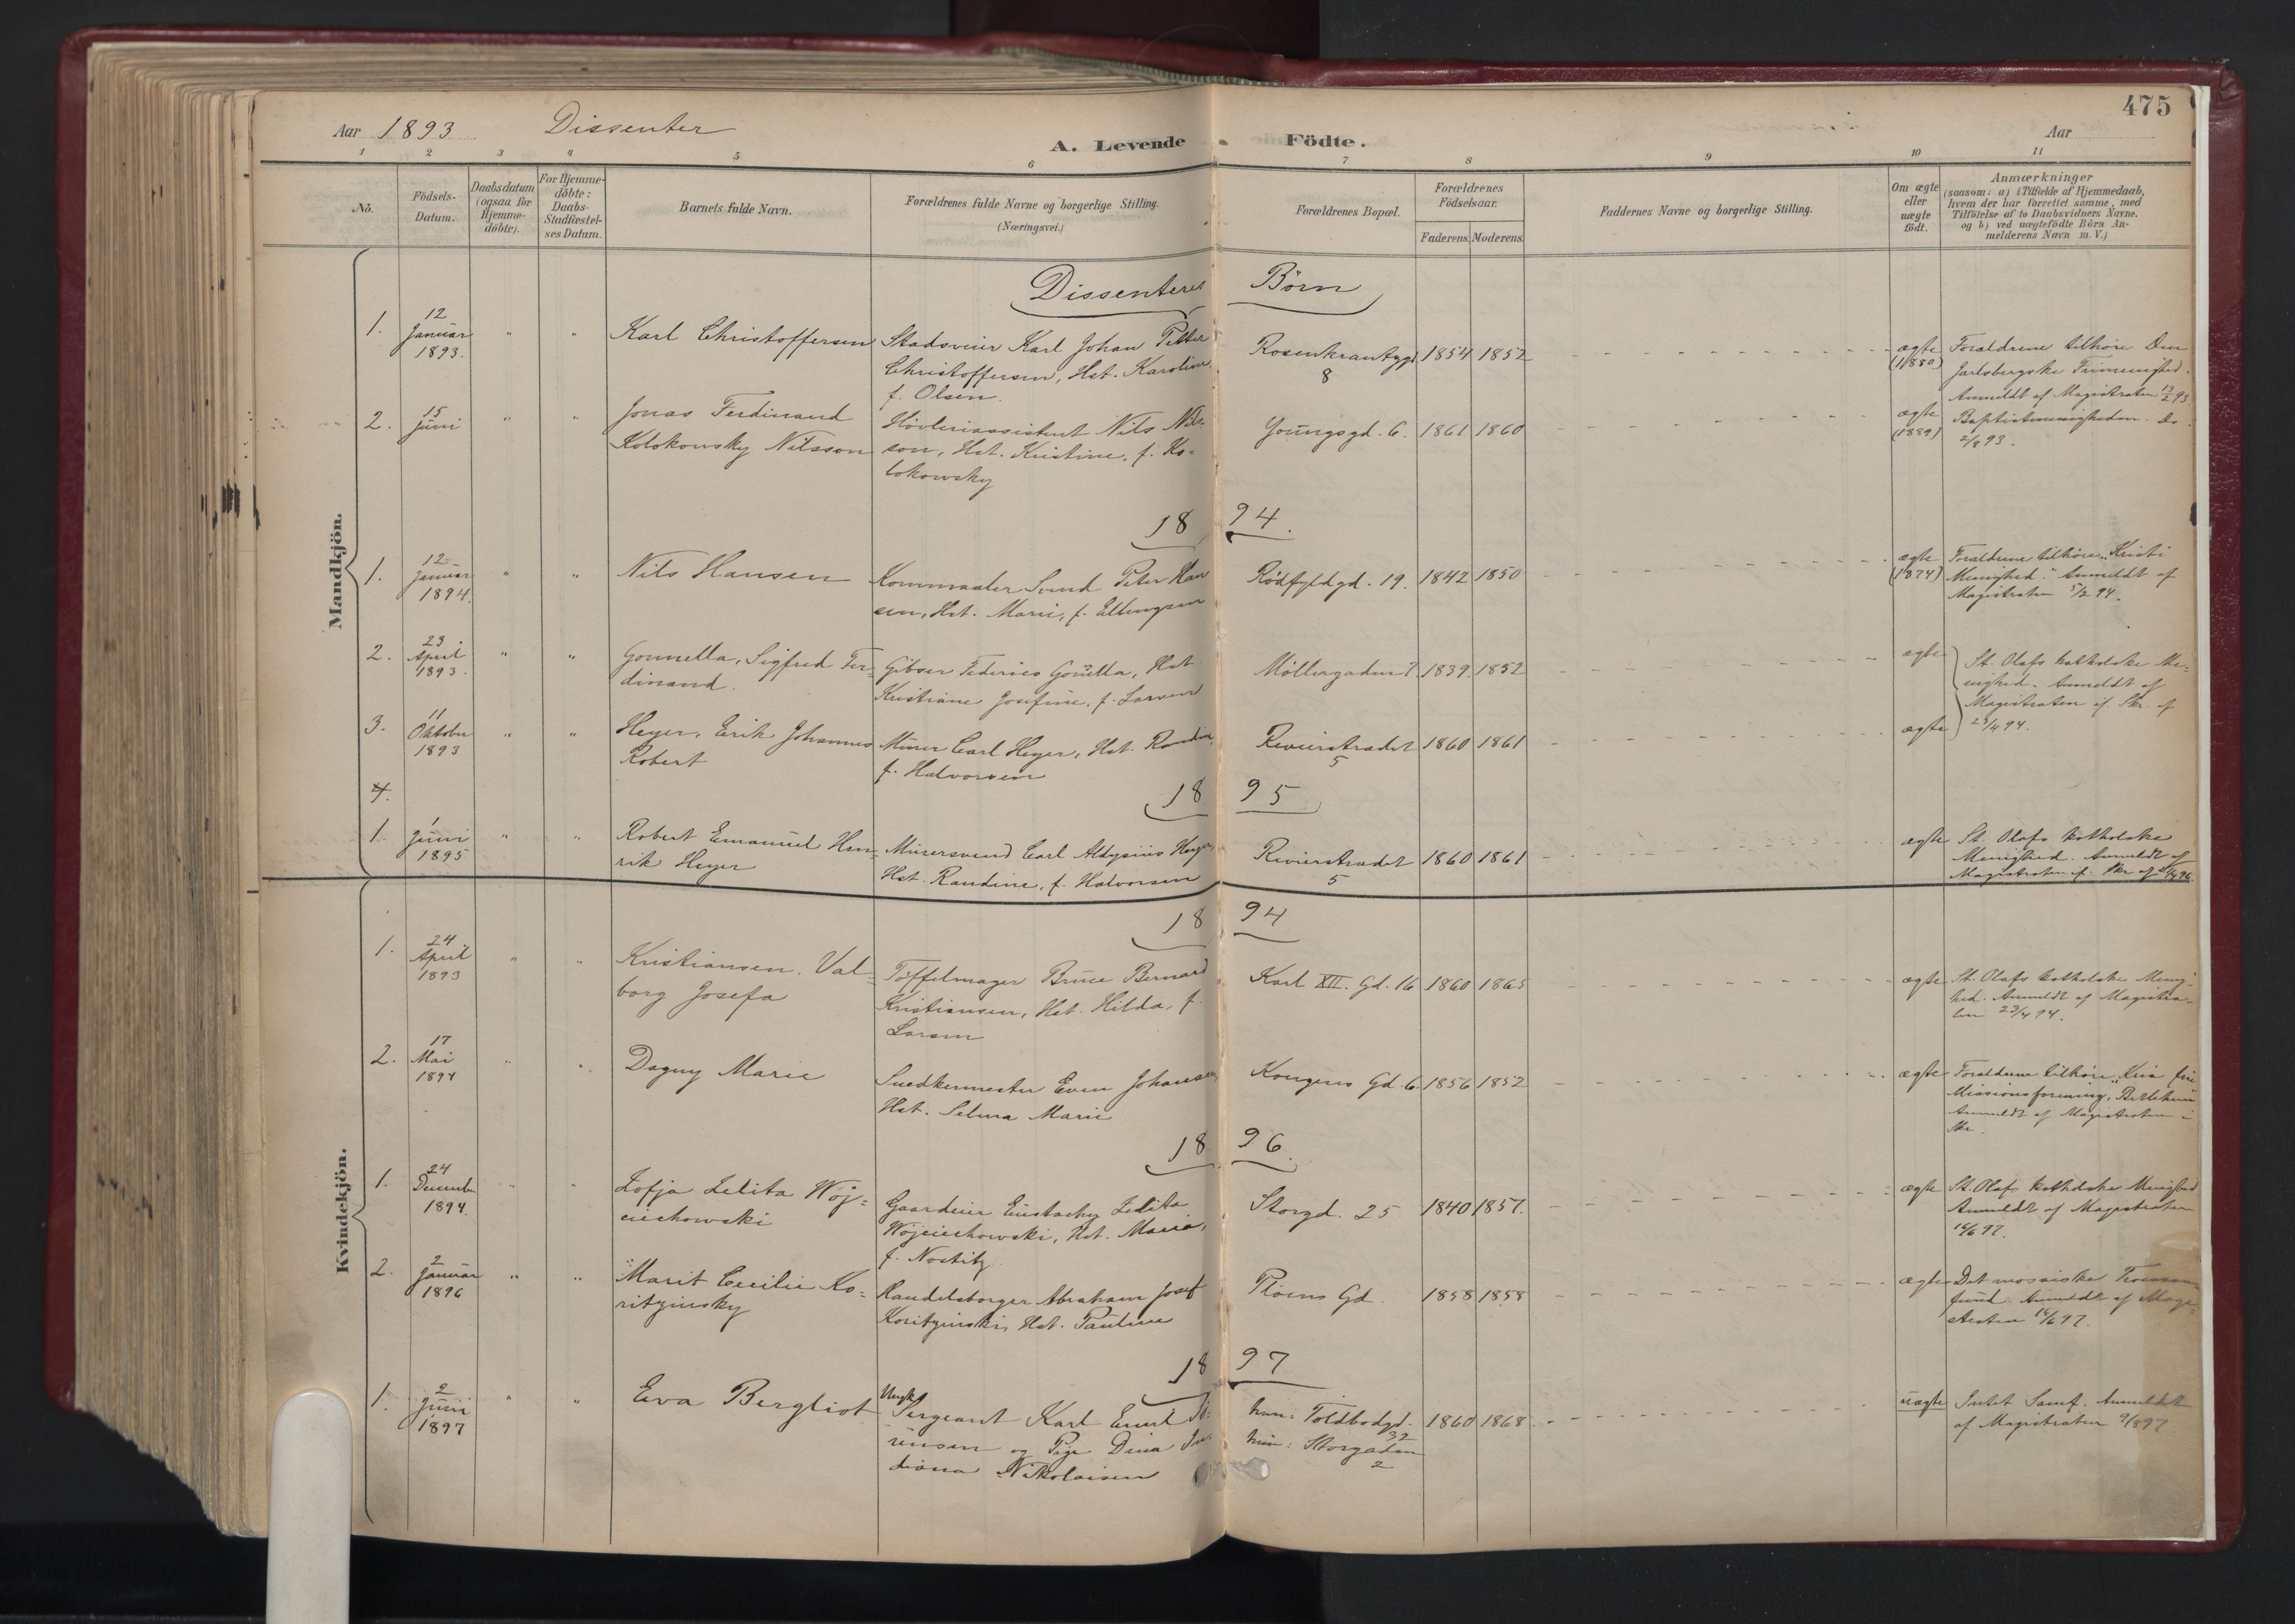 475
Aar 1893 Dissenter
A. Levende Födte.
Aar
1 2 3 4 5 6 7 8 9 10 11
No.
Födsels-
Datum.
Daabsdatum
(ogsaa for
Hjemme-
döbte).
For Hjemme-
döbte:
Daabs-
Stadfæstel-
ses Datum.
Barnets fulde Navn.
Forældrenes fulde Navne og borgerlige Stilling.
(Næringsvei.)
Forældrenes Bopæl.
Forældrenes
Födselsaar.
Faderens. Moderens.
Faddernes Navne og borgerlige Stilling.
Om ægte
eller
uægte
födt.
Anmærkninger
(saasom: a) i Tilfælde af Hjemmedaab,
hvem der har forrettet samme, med
Tilföielse af to Daabsvidners Navne.
og b) ved uægtefödte Börn An-
melderens Navn m. V.)
Mandkjön.
Dissenteres Börn
1.
12
Januar
1893.
Karl Christoffersen
Stadsveier Karl Johan Petter
Christoffersen, Hst. Karoline
f. Olsen.
Rosenkrantzgd.
8
1854 1852
ægte
(1880)
Forældrene tilhöre Den
Jarlsbergske Frimenighed.
Anmeldt af Magistraten 13/2 93.
2.
15
Juni
Jonas Ferdinand
Kolokowsky Nilsson
Høvleriassistent Nils Nils-
son, Hst. Kristine, f. Ko-
lokowsky
Youngsgd. 6.
1861 1860
ægte
(1889)
Baptistmenigheden. Do.
2/8 93.
1894.
1.
12
Januar
1894.
Nils Hansen
Kornmaaler Svend Peter Han
sen, Hst. Marie, f. Ellingsen
Rødfyldgd. 19.
1842 1850
ægte
(1874)
Forældrene tilhöre „Kristi
Menighed." Anmeldt af
Magistraten 5/2 94.
2.
23
April
1893.
Gonnella, Sigfred Fer-
dinand.
Gibser Federico Gonella, Hst
Kristiane Josefine, f. Larsen
Möllergaden 7.
1839. 1852
ægte
St. Olafs katholske Me-
nighed. Anmeldt af
Magistraten if. Skr. af
23/4 94.
3.
11
Oktober
1893
Heyer, Erik Johannes
Robert
Murer Carl Heyer, Hst. Randine,
f. Halvorsen
Revierstrædet
5
1860 1861
ægte
4.
1895
1.
1
Juni
1895
Robert Emanuel Hen-
rik Heyer
Murersvend Carl Aloysius Heyer,
Hst. Randine, f. Halvorsen
Revierstrædet
5
1860 1861
ægte
St. Olafs katholske
Menighed. Anmeldt af
Magistraten if. Skr. af
Kvindekjön.
1894
1.
24
April
1893
Kristiansen, Val-
borg Josefa
Töffelmager Brune Bernard
Kristiansen, Hst. Hilda, f.
Larsen
Karl XII. Gd. 16
1860 1865
ægte
St. Olafs katholske Menig-
hed. Anmeldt af Magistra-
ten 23/4 94.
2.
17
Mai
1894
Dagny Marie
Snedkermester Even Johansen,
Hst. Selma Marie
Kongens Gd. 6.
1856 1852
ægte
Forældrene tilhöre „Kria frie
Missionsforening, Betlehem"
Anmeldt af Magistraten i
Skr.
1896.
1.
24
December
1894.
Zofja Zelita Woj-
ciechowski
Gaardeier Eustachy Zelita
Wojciechowski, Hst. Maria,
f. Nostitz
Storgd. 25
1840 1857.
ægte
St. Olafs katholske Menighed
Anmeldt af Magistraten
16/6 97.
2.
2
Januar
1896
Marit Cecilie Ko-
ritzinsky
Handelsborger Abraham Josef
Koritzinski, Hst. Pauline
Pløens Gd.
1858 1858
ægte
Det mosaiske Trossam
fund. Anmeldt af Magi-
straten 16/6 97.
1897
1.
2
Juni
1897
Eva Bergliot
Ungk.
Sergeant Karl Emil Sö-
rensen og Pige Dina In-
diana Nikolaisen
han: Toldbodgd.
32
hun: Storgaden
2
1860 1868
uægte
Intet Samf. Anmeldt
af Magistraten 9/8 97